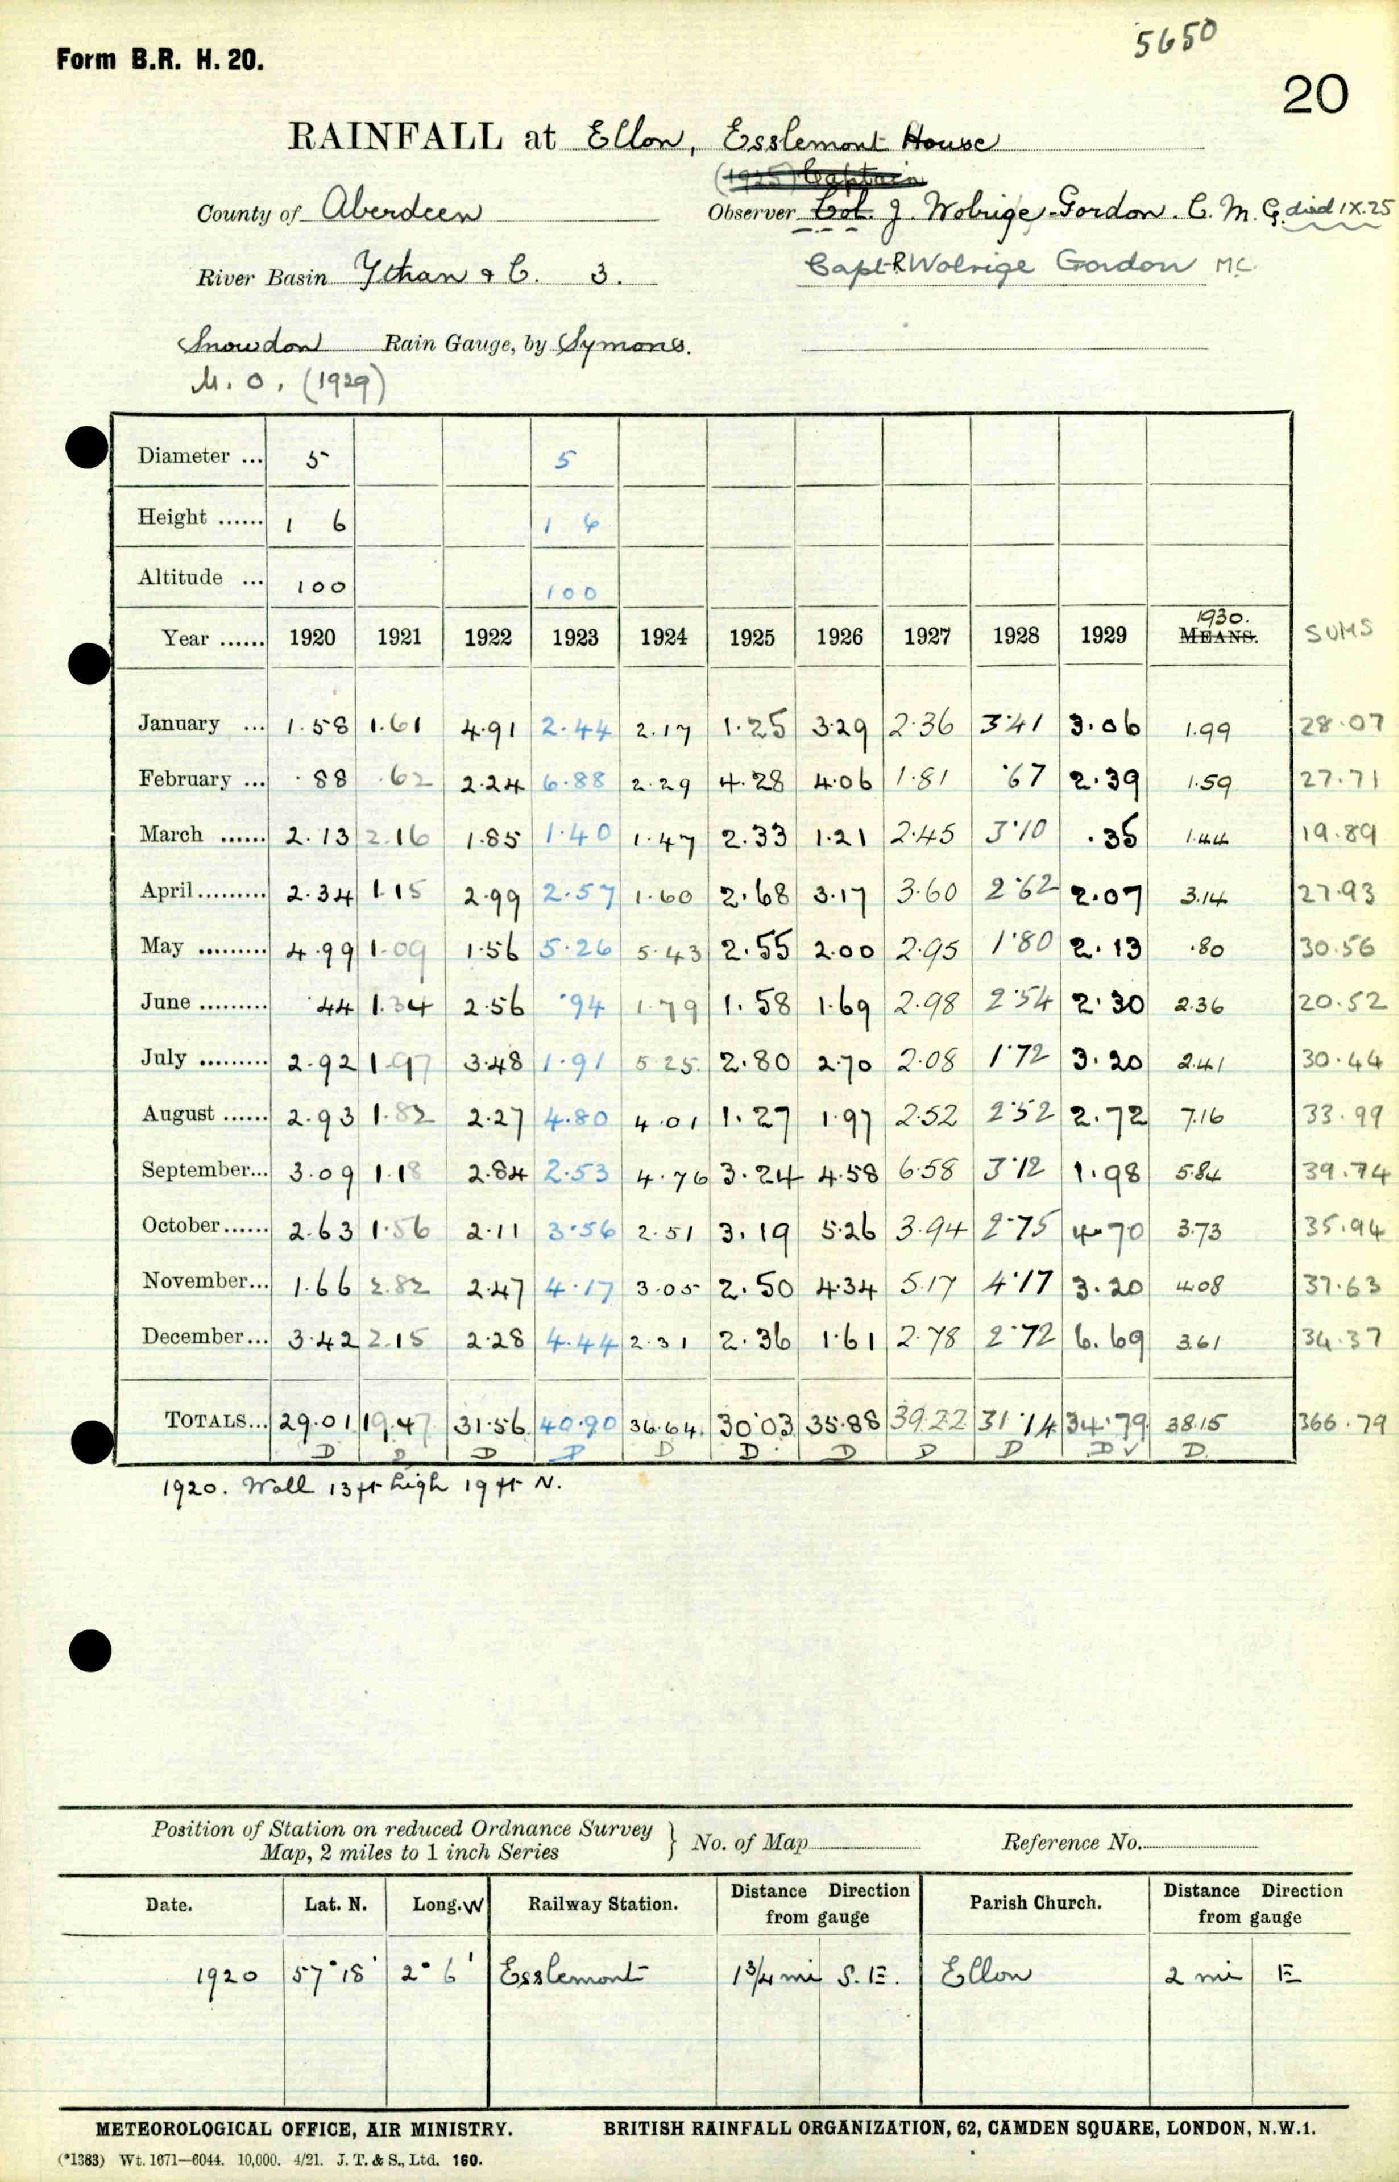 5650
Form B.R. H. 20.
20
RAINFALL at Ellon, Esslemont House
(1925) Captain
County of Aberdeen Observer Col. J. Wolrige-Gordon. C. M. G. died IX.25
River Basin Ythan & C. 3. Capt R Wolrige Gordon MC.
Snowdon Rain Gauge, by Symons.
M. O. (1929)
Diameter ... 5 5
Height ...... 1 6 1 6
Altitude ... 100 100
1930.
Year ...... 1920 1921 1922 1923 1924 1925 1926 1927 1928 1929 MEANS. SUMS
January ... 1.58 1.61 4.91 2.44 2.17 1.25 3.29 2.36 3.41 3.06 1.99 28.07
February ... .88 .62 2.24 6.88 2.29 4.28 4.06 1.81 .67 2.39 1.59 27.71
March ...... 2.13 2.16 1.85 1.40 1.47 2.33 1.21 2.45 3.10 .35 1.44 19.89
April ......... 2.34 1.15 2.99 2.57 1.60 2.68 3.17 3.60 2.62 2.07 3.14 27.93
May ......... 4.99 1.09 1.56 5.26 5.43 2.55 2.00 2.95 1.80 2.13 .80 30.56
June ......... .44 1.34 2.56 .94 1.79 1.58 1.69 2.98 2.54 2.30 2.36 20.52
July ......... 2.92 1.97 3.48 1.91 5.25 2.80 2.70 2.08 1.72 3.20 2.41 30.44
August ...... 2.93 1.82 2.27 4.80 4.01 1.27 1.97 2.52 2.52 2.72 7.16 33.99
September... 3.09 1.18 2.84 2.53 4.76 3.24 4.58 6.58 3.12 1.98 5.84 39.74
October...... 2.63 1.56 2.11 3.56 2.51 3.19 5.26 3.94 2.75 4.70 3.73 35.94
November... 1.66 2.82 2.47 4.17 3.05 2.50 4.34 5.17 4.17 3.20 4.08 37.63
December... 3.42 2.15 2.28 4.44 2.31 2.36 1.61 2.78 2.72 6.69 3.61 34.37
TOTALS... 29.01 19.47 31.56 40.90 36.64 30.03 35.88 39.22 31.14 34.79 38.15 366.79
D D D D D D D D D D ✓ D
1920. Wall 13 ft high 19 ft N.
Position of Station on reduced Ordnance Survey
Map, 2 miles to 1 inch Series } No. of Map Reference No.
Date. Lat. N. Long. W Railway Station. Distance from gauge Direction Parish Church. Distance from gauge Direction
1920 57° 18' 2° 6' Esslemont 1¾ mi S. E. Ellon 2 mi E
METEOROLOGICAL OFFICE, AIR MINISTRY. BRITISH RAINFALL ORGANIZATION, 62, CAMDEN SQUARE, LONDON, N.W.1.
(*1383) Wt. 1671—6044. 10,000. 4/21. J. T. & S., Ltd. 160.